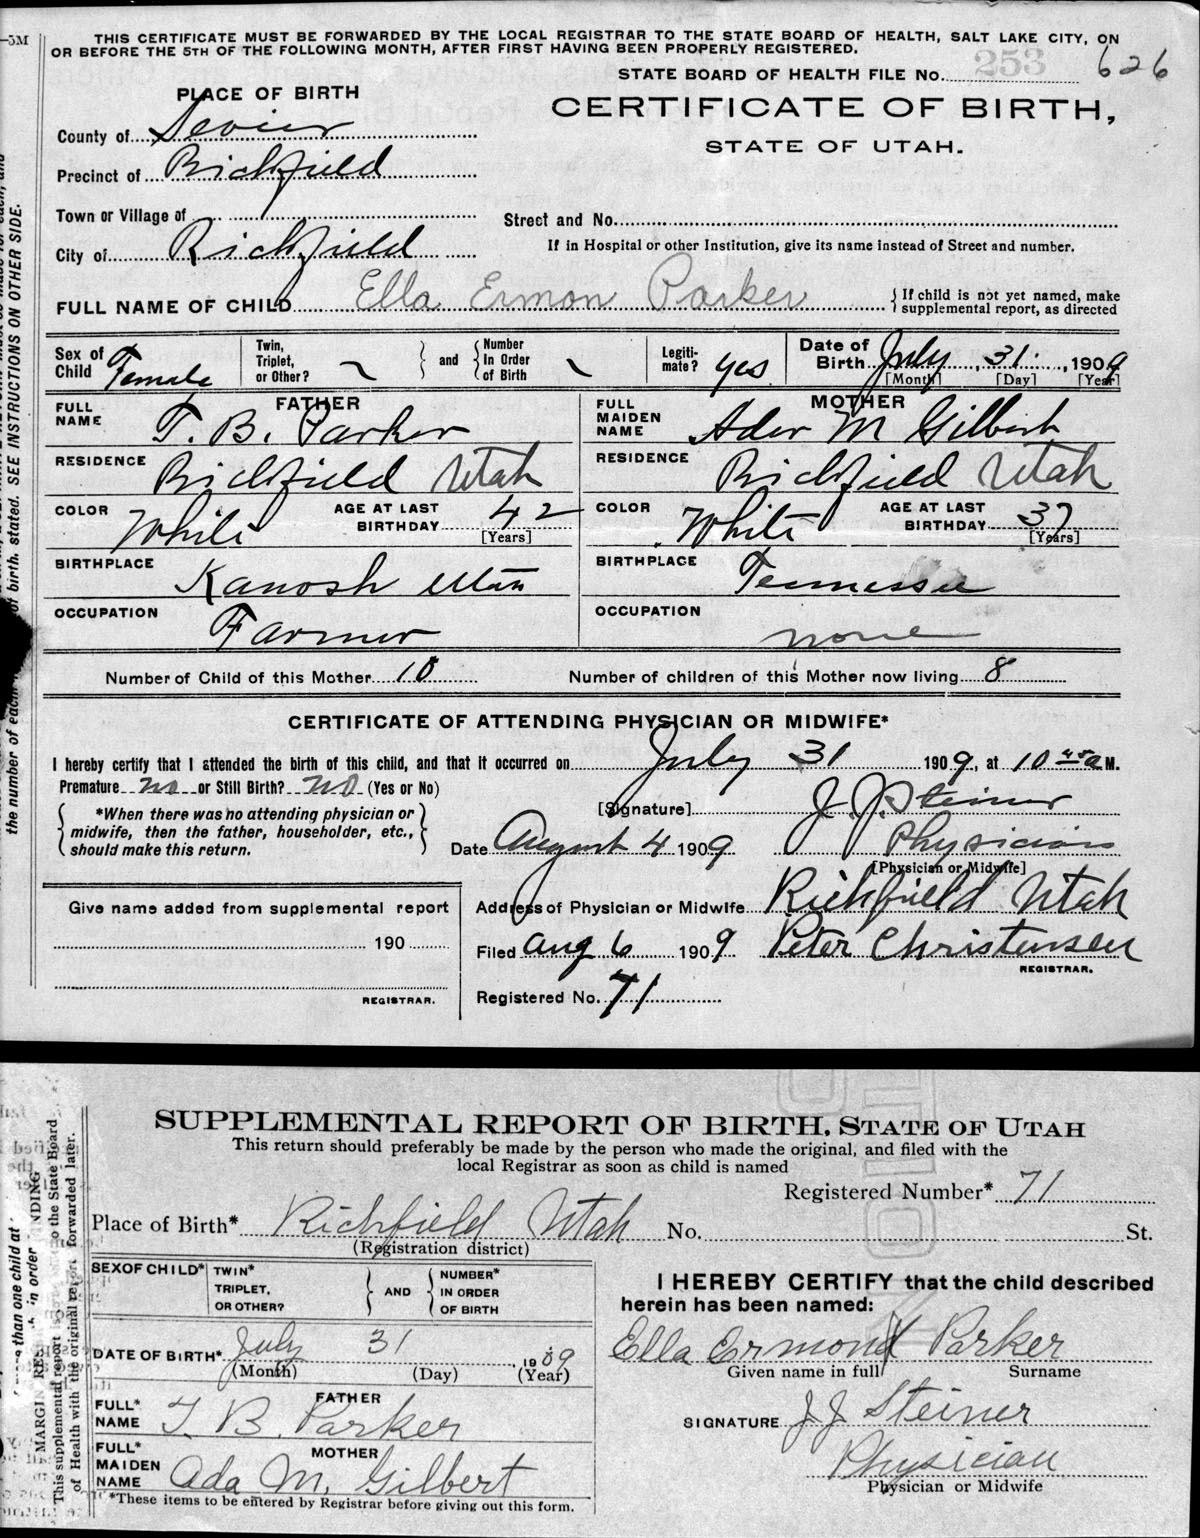 -5M
THIS CERTIFICATE MUST BE FORWARDED BY THE LOCAL REGISTRAR TO THE STATE BOARD OF HEALTH, SALT LAKE CITY, ON
OR BEFORE THE 5TH OF THE FOLLOWING MONTH, AFTER FIRST HAVING BEEN PROPERLY REGISTERED.
STATE BOARD OF HEALTH FILE No. 253 626
PLACE OF BIRTH
CERTIFICATE OF BIRTH,
STATE OF UTAH.
County of Sevier
Precinct of Richfield
Town or Village of
Street and No.
City of Richfield
If in Hospital or other Institution, give its name instead of Street and number.
FULL NAME OF CHILD Ella Ermon Parker { If child is not yet named, make supplemental report, as directed
Sex of Child Female Twin, Triplet, or Other? } and { Number In Order of Birth Legiti-mate? yes Date of Birth July 31, 1909
[Month] [Day] [Year]
FATHER MOTHER
FULL NAME T. B. Parker FULL MAIDEN NAME Ader M Gilbert
RESIDENCE Richfield Utah RESIDENCE Richfield Utah
COLOR White AGE AT LAST BIRTHDAY 42 [Years] COLOR White AGE AT LAST BIRTHDAY 37 [Years]
BIRTHPLACE Kanosh Utah BIRTHPLACE Tennessee
OCCUPATION Farmer OCCUPATION none
Number of Child of this Mother 10 Number of children of this Mother now living 8
CERTIFICATE OF ATTENDING PHYSICIAN OR MIDWIFE*
I hereby certify that I attended the birth of this child, and that it occurred on July 31 1909, at 10 45 a M.
Premature no or Still Birth? no (Yes or No)
[Signature] J. J. Steiner
{ *When there was no attending physician or midwife, then the father, householder, etc., should make this return. }
Date August 4 1909 Physician
[Physician or Midwife]
Give name added from supplemental report
Address of Physician or Midwife Richfield Utah
190
Filed Aug 6 1909. Peter Christensen
REGISTRAR.
REGISTRAR.
Registered No. 71
the number of each
of birth, stated. SEE INSTRUCTIONS ON OTHER SIDE.
SUPPLEMENTAL REPORT OF BIRTH, STATE OF UTAH
This return should preferably be made by the person who made the original, and filed with the
local Registrar as soon as child is named
Registered Number* 71
Place of Birth* Richfield Utah No. St.
(Registration district)
SEX OF CHILD* TWIN* TRIPLET, OR OTHER? } AND { NUMBER* IN ORDER OF BIRTH
I HEREBY CERTIFY that the child described
herein has been named:
DATE OF BIRTH* July 31, 1909
(Month) (Day) (Year)
Ella Ermon Parker
Given name in full Surname
FATHER
FULL* NAME T. B. Parker
SIGNATURE J J Steiner
MOTHER
FULL* MAIDEN NAME Ada M. Gilbert
Physician
Physician or Midwife
*These items to be entered by Registrar before giving out this form.
more than one child at
This supplemental report
to the State Board
of Health with the original report forwarded later.